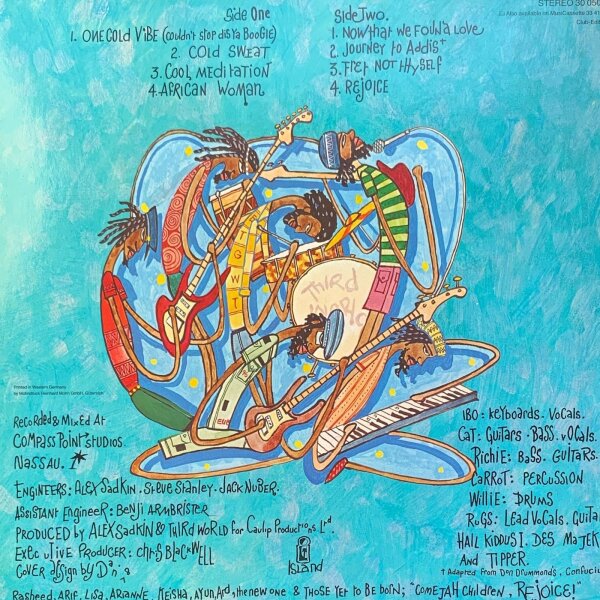 STEREO 30 050
Also available on MusiCassette 33 41
Club-Edit
Side One
1. ONE COLD VIBE (Couldn't stop dis ya Boogie)
2. COLD SWEAT
3. COOL MEDITATION
4. AFRICAN WOMAN
Side Two.
1. Now that we Found a Love
2. Journey to Addis†
3. Fret not thyself
4. Rejoice
TGWT
Third
World
Printed in Western Germany
by Mohndruck Reinhard Mohn GmbH, Gütersloh
Recorded & Mixed At
COMPASS POINT STUDIOS
NASSAU. 1*
ENGINEERS: ALEX SADKIN. Steve Stanley. JACK NUBER.
ASSISTANT ENGINEER: BENJI ARMBRISTER
PRODUCED by ALEX SADKIN & THIRD WORLD for Cavlip Productions. Ltd.
EXECUTIVE PRODUCER: CHRIS BLACKWELL
COVER design by
Island
IBO: keyboards. Vocals.
CAT: GUITARS. BASS. vOCALS.
Richie: BASS. GUITARS.
CARROT: PERCUSSION
Willie: DRUMS
RUGS: LEAD VOCALS. GUITA
HALL KIDDUS I. DES MAJEK
AND TIPPER.
† Adapted from Don Drummonds, Confuciu
Rasheed, ARIF, LISA, ARIANNE, KEISHA, AYUN, ARD, the new one & THOSE YET TO BE BORN; "COME JAH CHILDREN, REJOICE!"